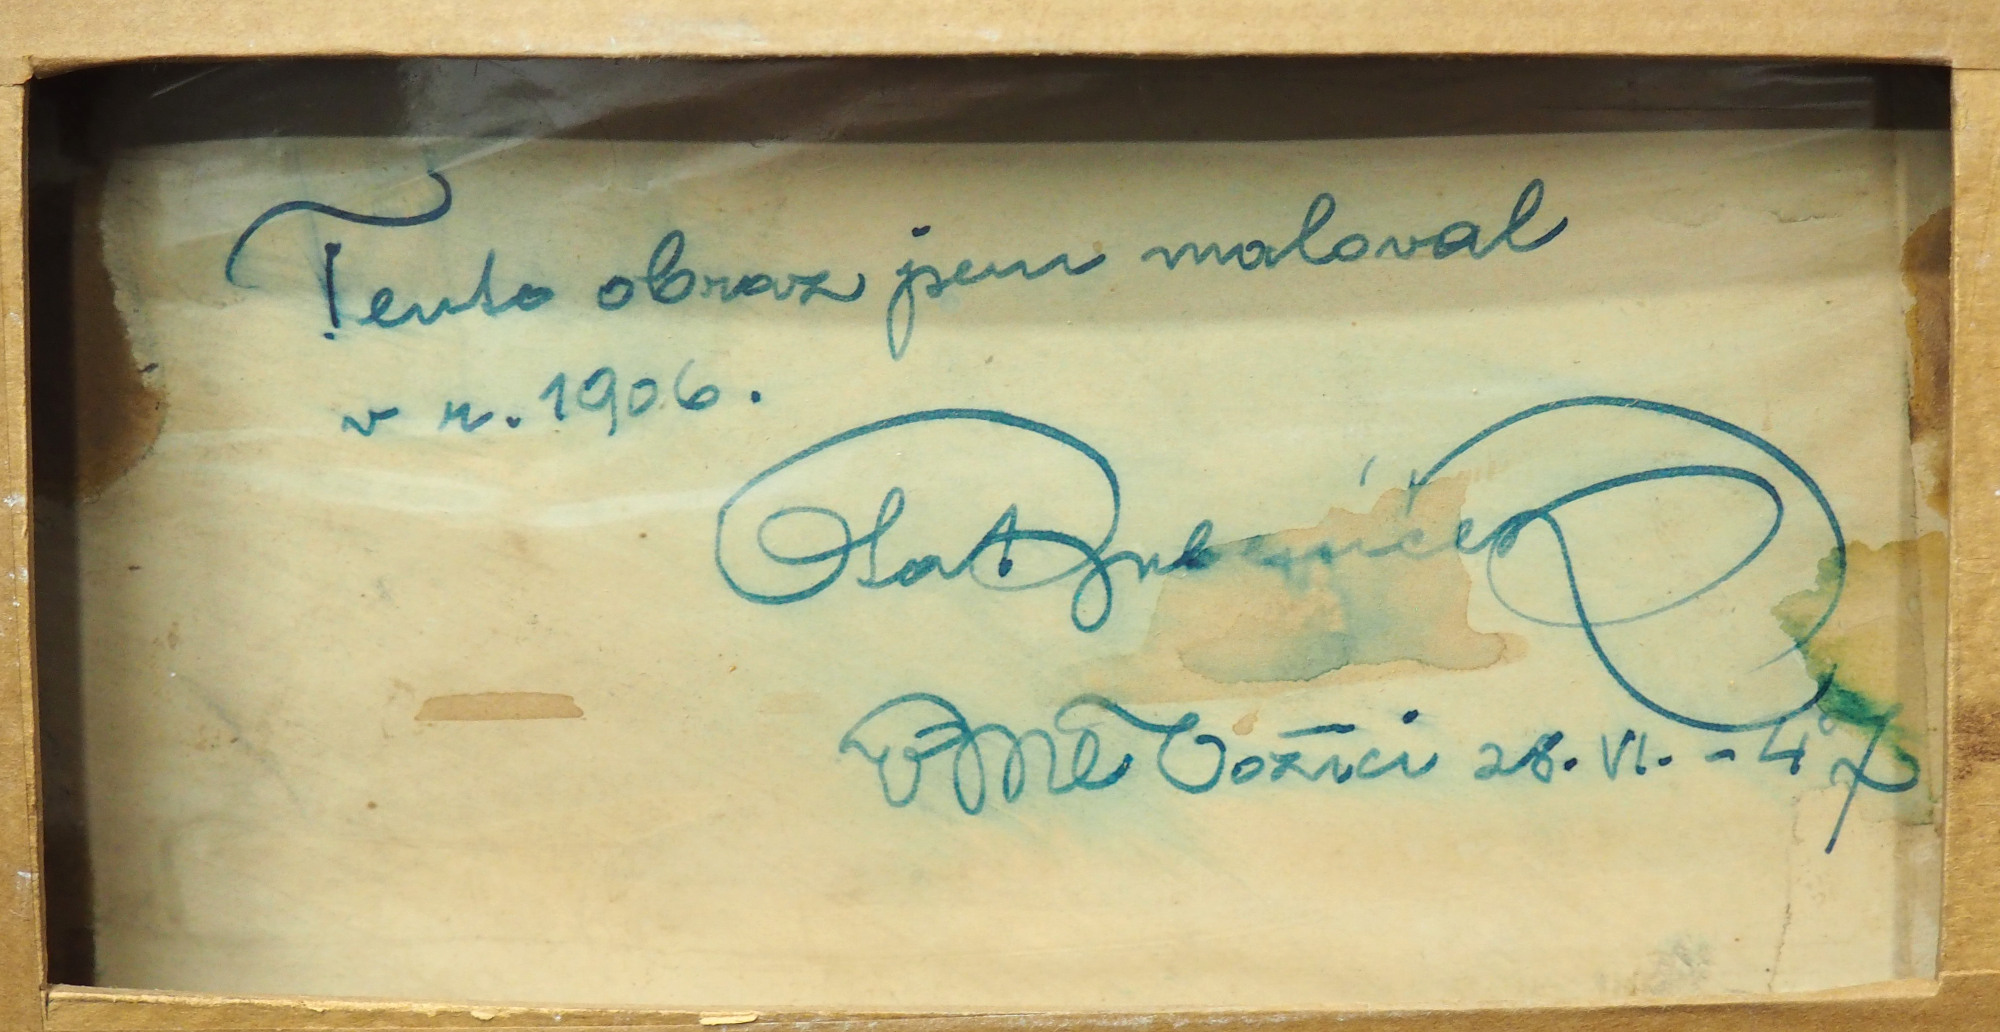 Tento obraz jsem maloval
v r. 1906.
Ota Bubeníček
V Ml Vožici 28. VI. - 47